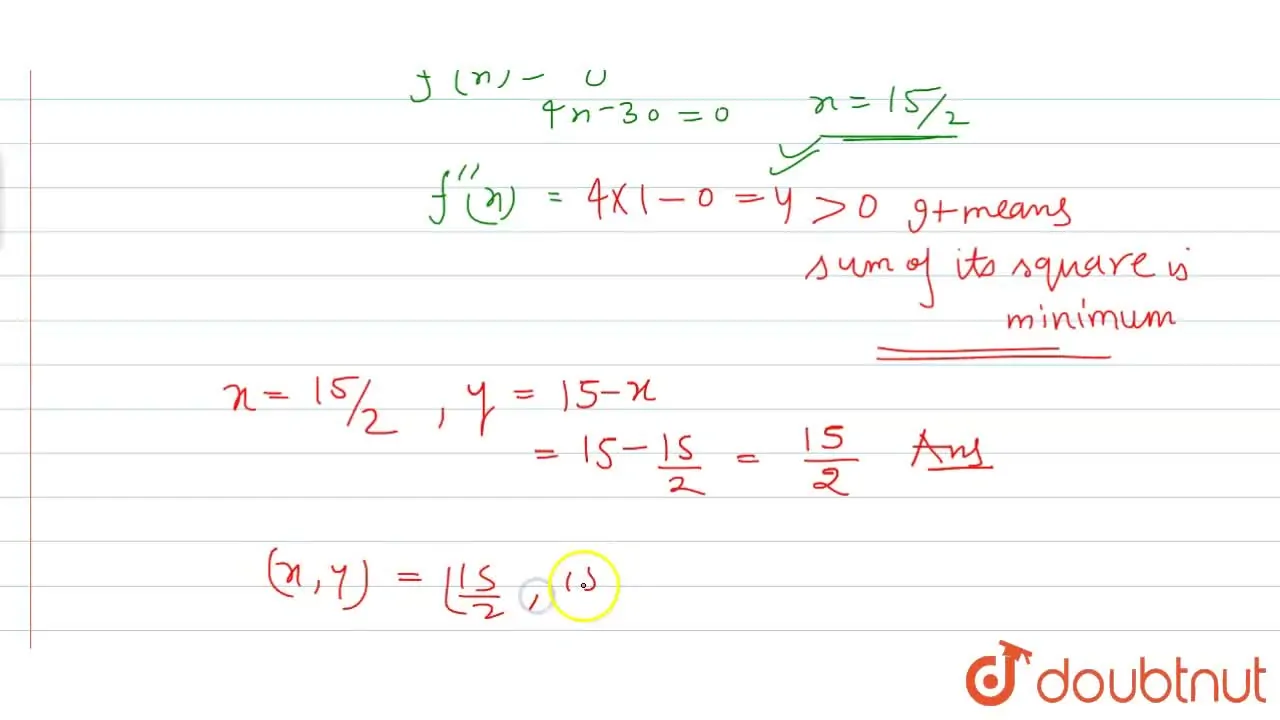 f'(x) = 0
4x-30=0
x=15/2
f''(x) = 4×1-0=4>0 It means
sum of its square is
minimum
x=15/2, y = 15-x
= 15-15/2 = 15/2 Ans
(x,y) = (15/2, 15
doubtnut